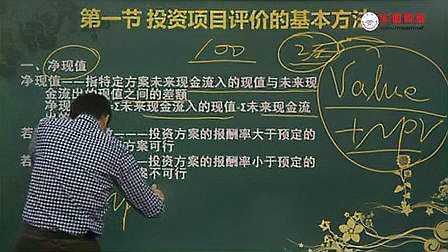 第一节 投资项目评价的基本方法
100
一、净现值
净现值——指特定方案未来现金流入的现值与未来现
金流出的现值之间的差额
净现值 Σ未来现金流入的现值-Σ未来现金流
出的
若 ——投资方案的报酬率大于预定的
方案可行
若 投资方案的报酬率小于预定的
案不可行
Value
+NPV